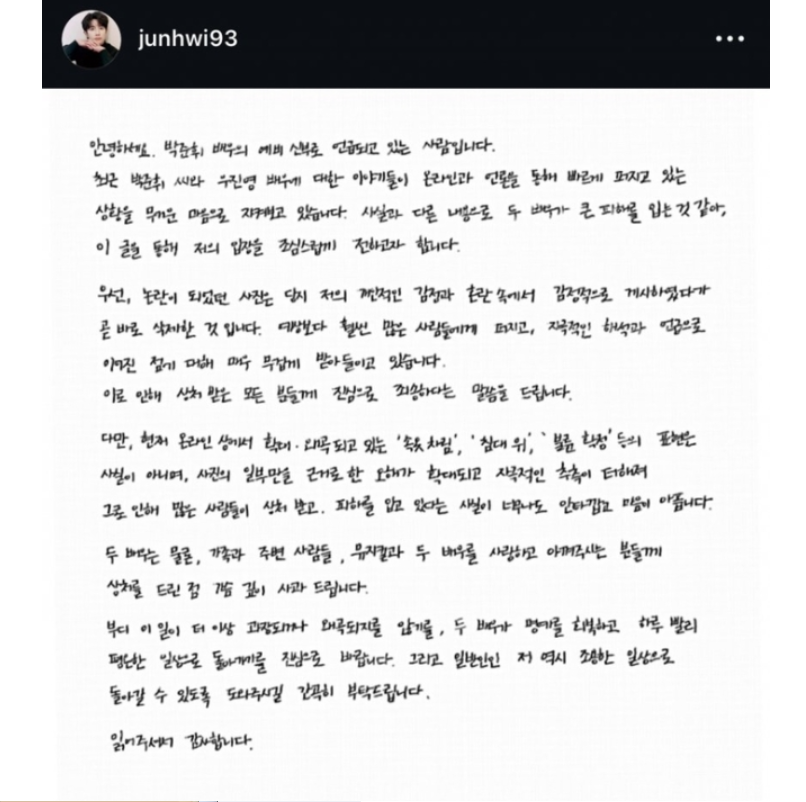 junhwi93
안녕하세요. 박준휘 배우의 예비 신부로 언급되고 있는 사람입니다.
최근 박준휘 씨와 우진영 배우에 대한 이야기들이 온라인과 언론을 통해 빠르게 퍼지고 있는
상황을 무거운 마음으로 지켜보고 있습니다. 사실과 다른 내용으로 두 배우가 큰 피해를 입는 것 같아,
이 글을 통해 저의 입장을 조심스럽게 전하고자 합니다.
우선, 논란이 되었던 사진은 당시 저의 개인적인 감정과 혼란 속에서 감정적으로 게시하였다가
곧 바로 삭제한 것 입니다. 예상보다 훨씬 많은 사람들에게 퍼지고, 자극적인 해석과 언급으로
이어진 점에 대해 매우 무겁게 받아들이고 있습니다.
이로 인해 상처 받은 모든 분들께 진심으로 죄송하다는 말씀을 드립니다.
다만, 현재 온라인 상에서 확대·왜곡되고 있는 '속옷 차림', '침대 위', '불륜 확정' 등의 표현은
사실이 아니며, 사진의 일부만을 근거로 한 오해가 확대되고 자극적인 추측이 더해져
그로 인해 많은 사람들이 상처 받고, 피해를 입고 있다는 사실이 너무나도 안타깝고 마음이 아픕니다.
두 배우는 물론, 가족과 주변 사람들, 뮤지컬과 두 배우를 사랑하고 아껴주시는 분들께
상처를 드린 점 가슴 깊이 사과 드립니다.
부디 이 일이 더 이상 과장되거나 왜곡되지를 않기를, 두 배우가 명예를 회복하고 하루 빨리
평온한 일상으로 돌아가기를 진심으로 바랍니다. 그리고 일반인인 저 역시 조용한 일상으로
돌아갈 수 있도록 도와주시길 간곡히 부탁드립니다.
읽어주셔서 감사합니다.